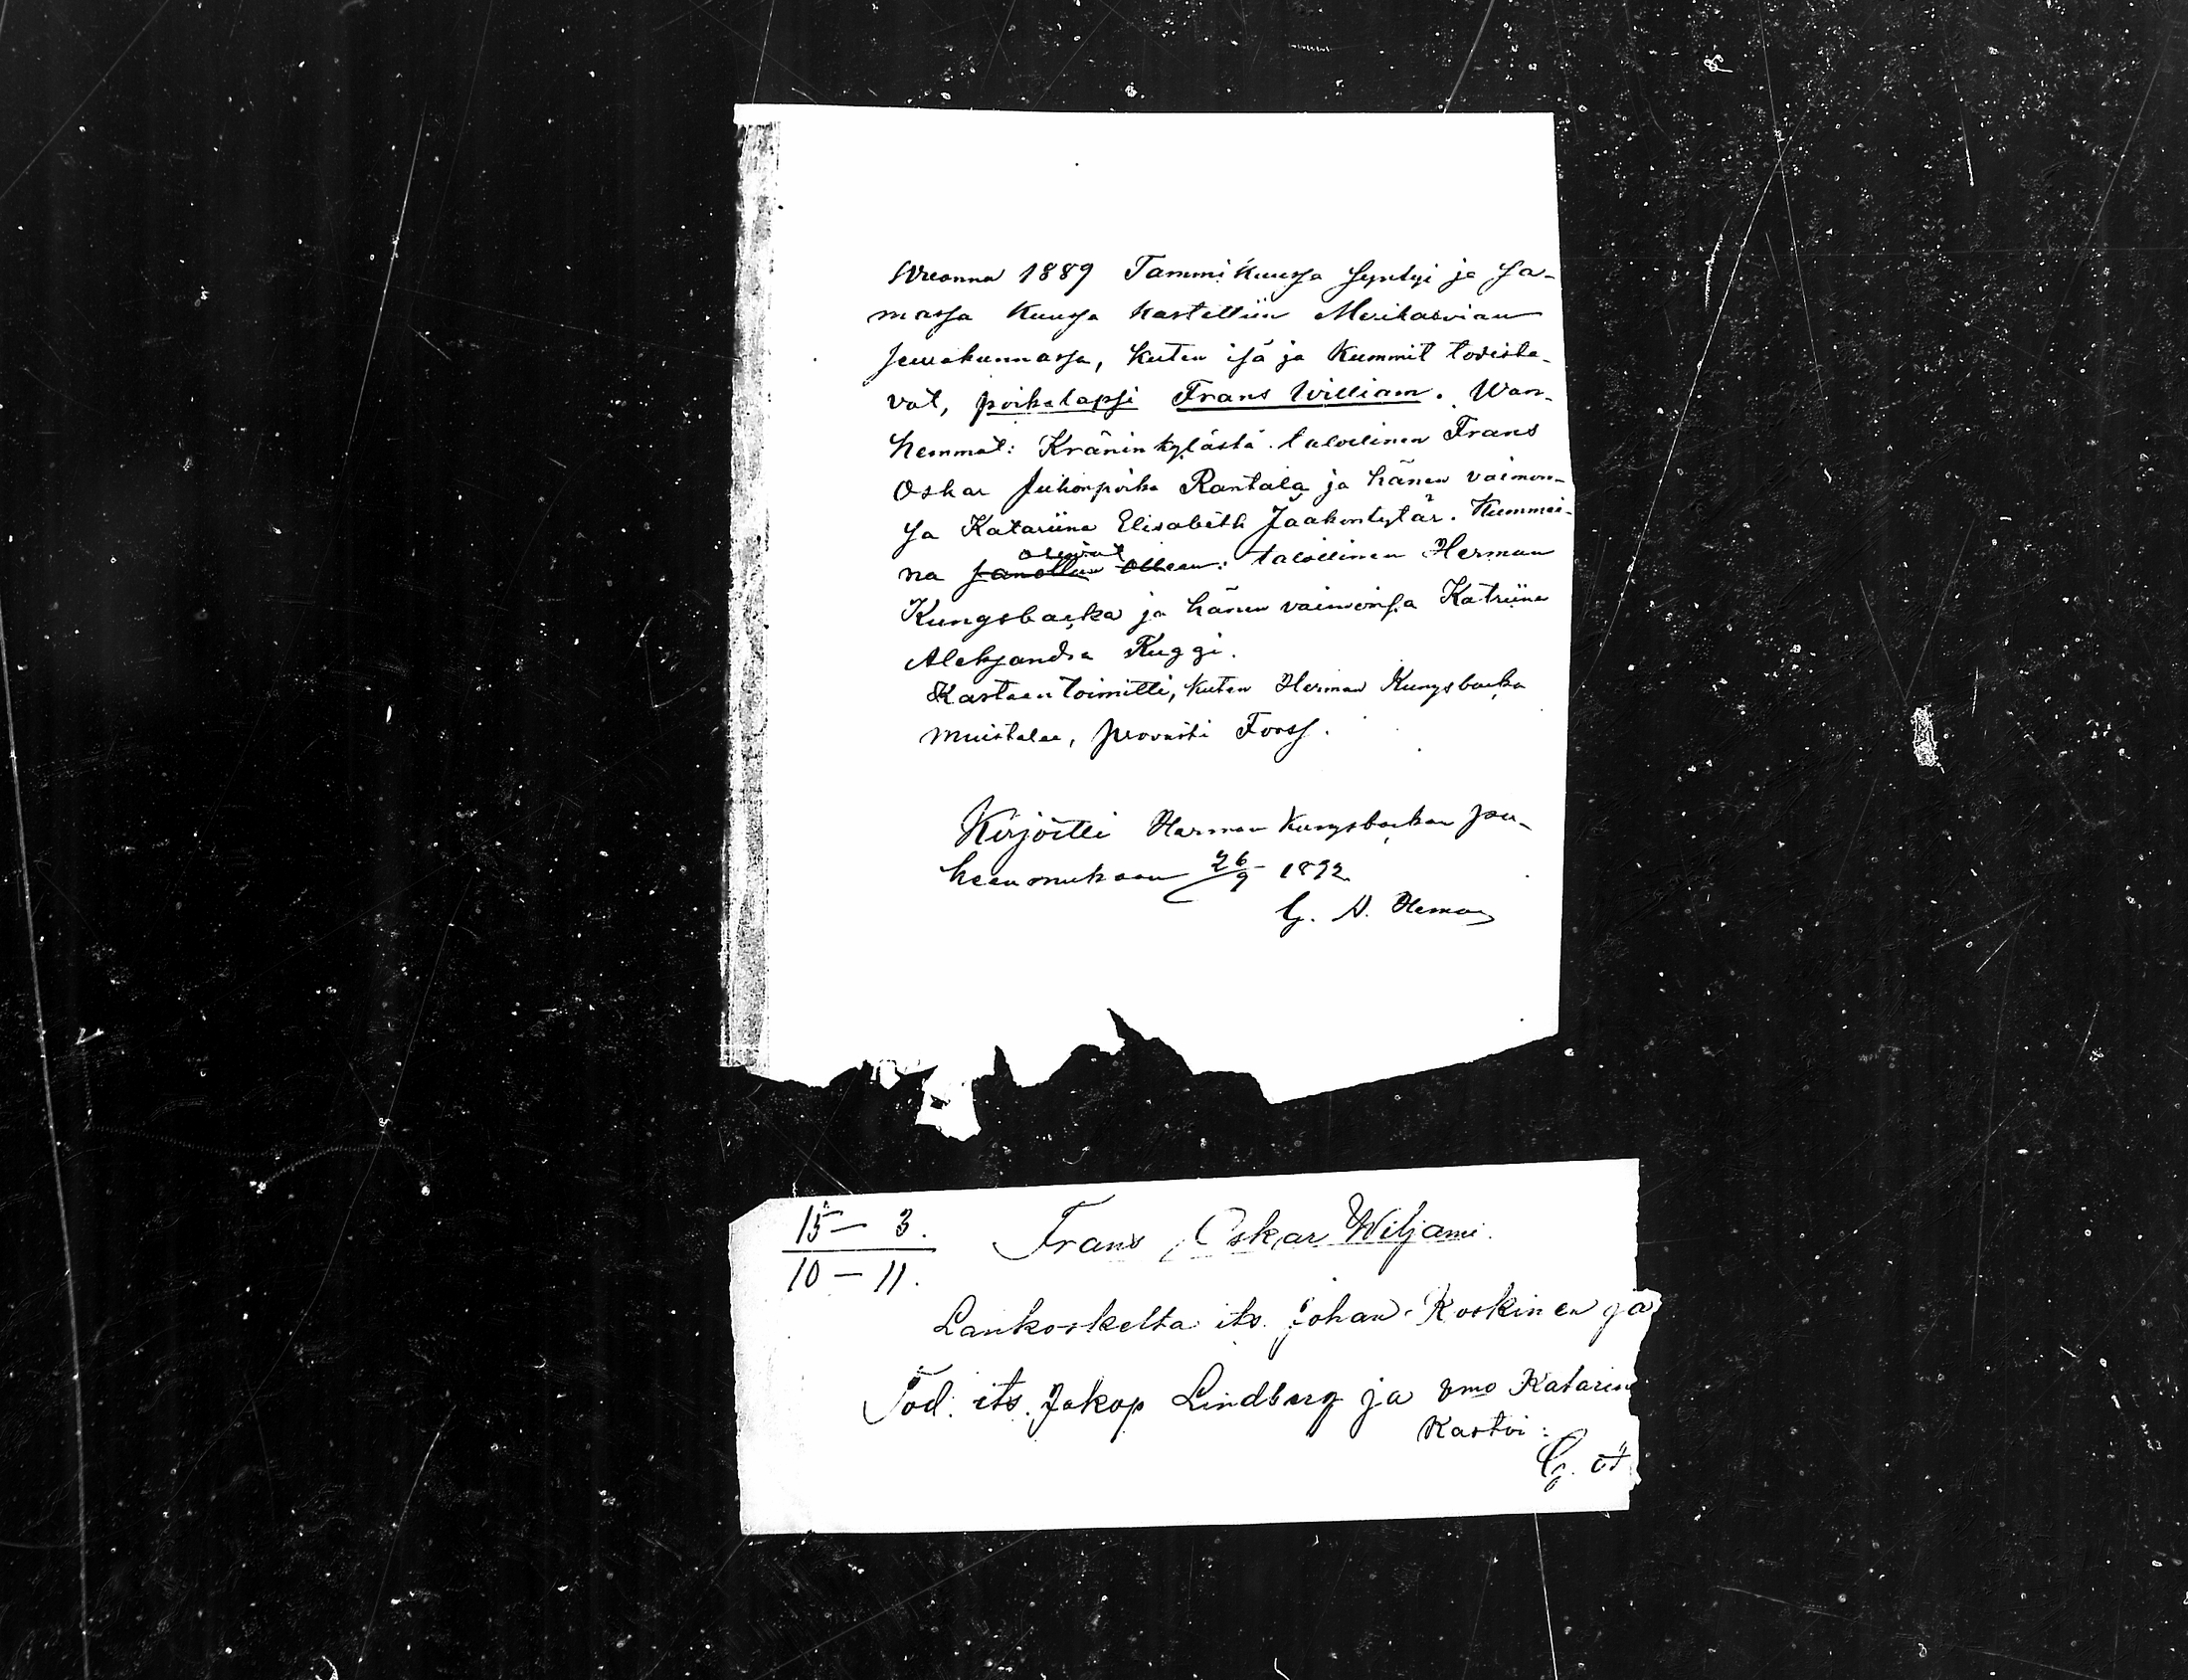 Wuonna 1889 Tammikuussa syntyi ja sa-
massa kuussa kastettiin Merikarvian
seurakunnassa, kuten isä ja kummit todista-
vat, poikalapsi Frans William. Wan-
hemmat: Kränin kylästä talollinen Frans
Oskar Juhonpoika Rantala ja hänen vaimon-
sa Katariina Elisabeth Jaakontytär. Kummei-
na olivat talollinen Herman
Kungsbacka ja hänen vaimonsa Katriina
Aleksandra Kuggi.
Kasteen toimitti, kuten Herman Kungsbacka
muistelee, provasti Forss.
Kirjoitti Herman Kungsbackan pu-
heen mukaan 26/9 1892
G. A. Heman
15 – 3.
10 – 11.
Frans Oskar Wiljami.
Lankoskelta its. Johan Koskinen ja
Tod. its. Jakop Lindberg ja vmo Katarin
Kastoi:
G.